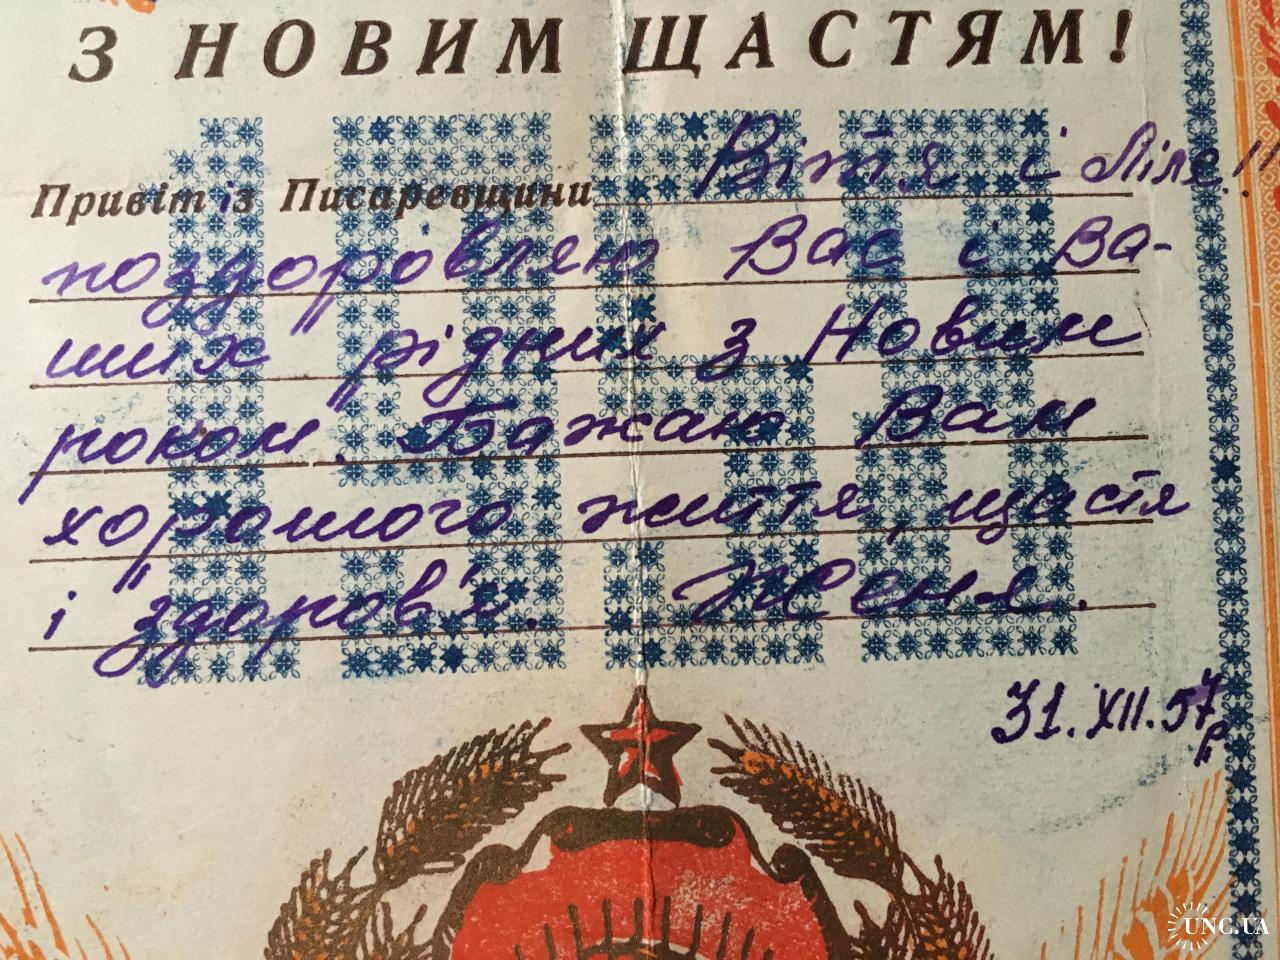 З НОВИМ ЩАСТЯМ!
Привіт із Писаревщини Вітя і Ліля!!
поздоровляю Вас і Ва-
ших рідних з Новим
роком. Бажаю Вам
хорошого життя, щастя
і здоров'я. Женя.
31.XII.57р
UNC.UA